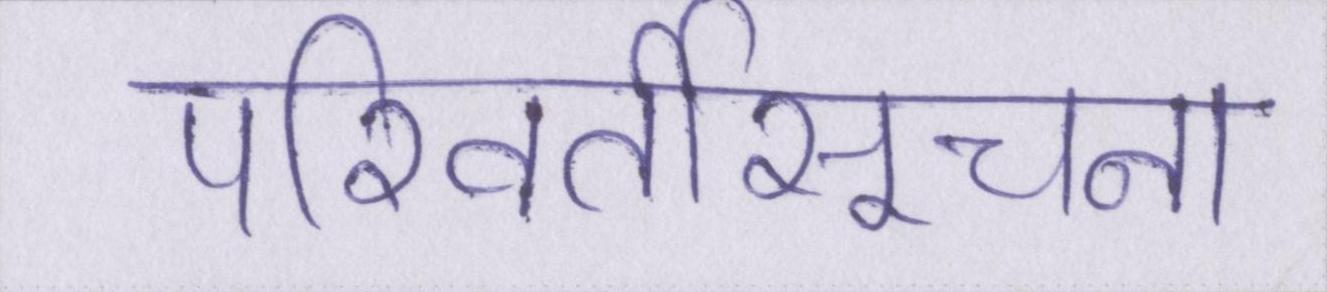 परिवर्तीसूचना